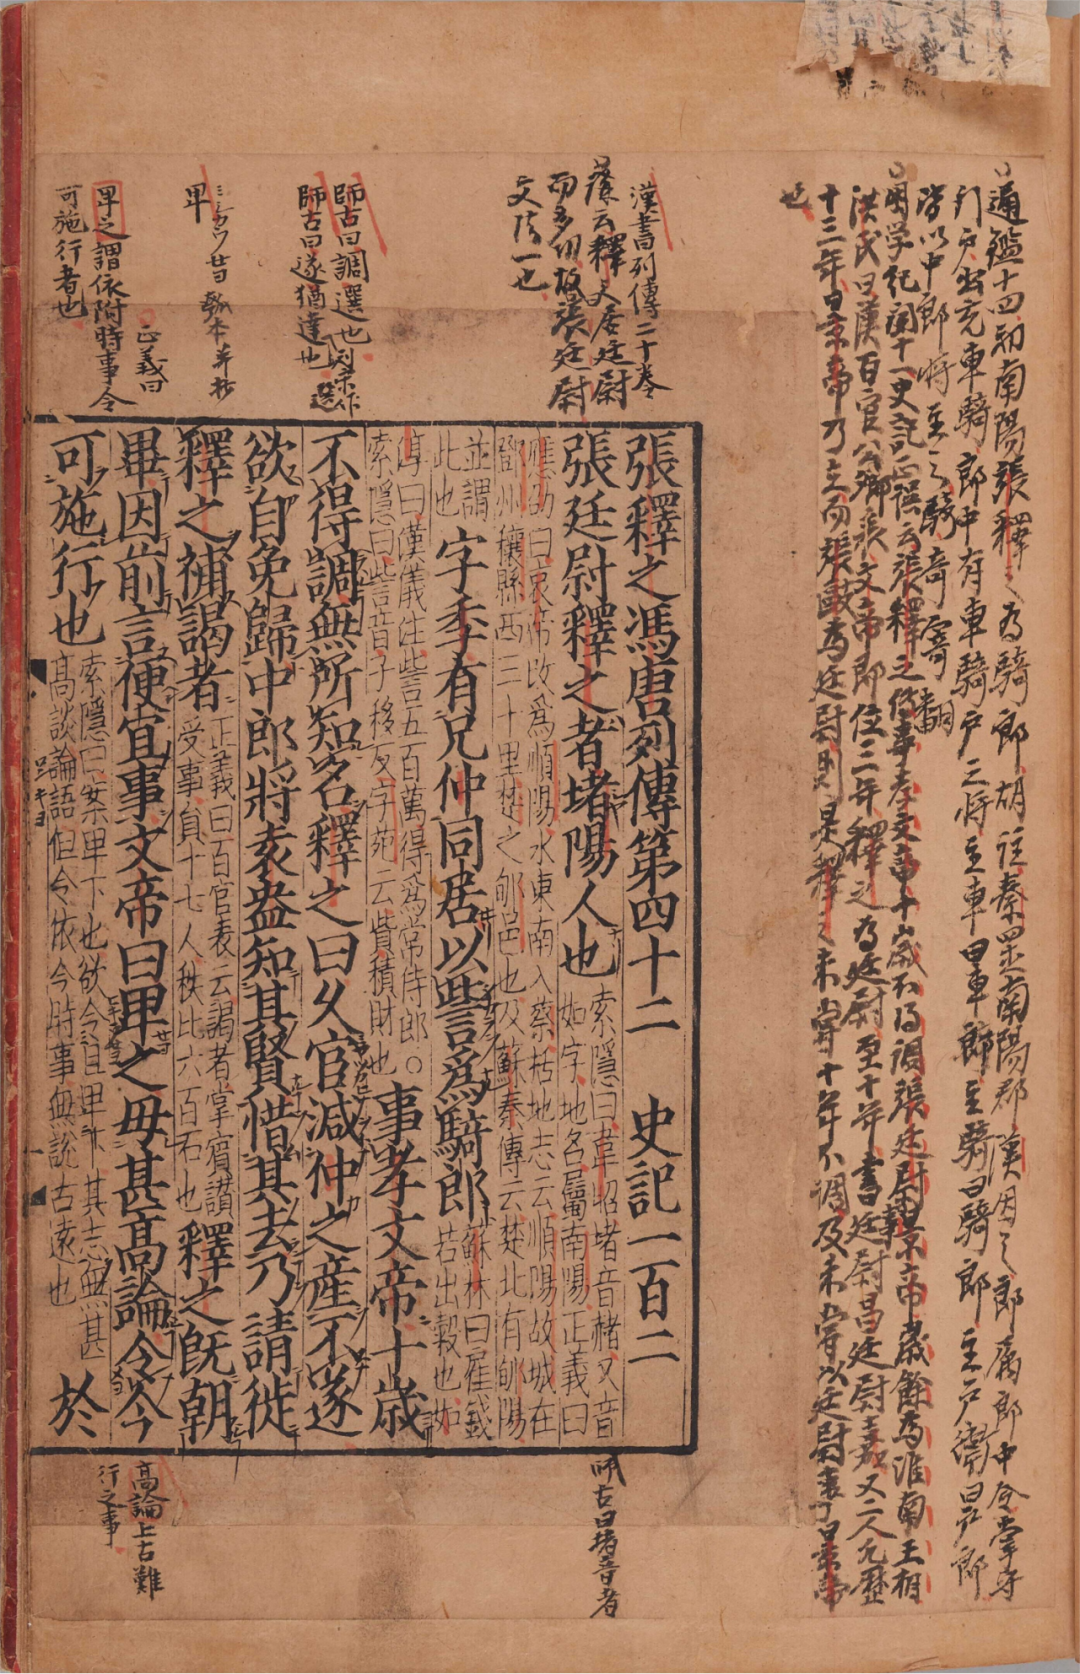 通鑑十四初南陽張釋之為騎郎胡註秦置南陽郡漢因之郎屬郎中令掌守
門戶出充車騎郎中有車騎戶之將主車曰車郎主騎曰騎郎主戶衛曰戶郎
皆以中郎將主之
困学紀聞十一史記正誤云張釋之傳事孝文帝十歲不得調張廷尉事景帝歲餘為淮南王相
洪氏曰漢百官公卿表文帝即位三年釋之為廷尉至十年書廷尉昌廷尉嘉又二人凡歷
十三年景帝乃立而張敺為廷尉則是釋之未嘗十年不調及未嘗以廷尉事景帝
也
漢書列傳二十卷
師古曰堵音者
師古曰調選也
師古曰遂猶達也
卑
正義曰
卑之謂依附時事令
可施行者也
張釋之馮唐列傳第四十二 史記一百二
張廷尉釋之者堵陽人也
索隱曰韋昭堵音赭又音
如字地名屬南陽正義曰
應劭曰哀帝改爲順陽水東南入蔡括地志云順陽故城在
鄧州穰縣西三十里楚之郇邑也及蘇秦傳云楚北有郇陽
並謂
此也
字季有兄仲同居以訾爲騎郎
蘇林曰雇錢
若出穀也如
淳曰漢儀注訾五百萬得爲常侍郎○
索隱曰訾音子移反字苑云貲積財也
事孝文帝十歲
不得調無所知名釋之曰久官減仲之產不遂
欲自免歸中郎將袁盎知其賢惜其去乃請徙
釋之補謁者
正義曰百官表云謁者掌賓讚
受事員十七人秩比六百石也
釋之既朝
畢因前言便宜事文帝曰卑之毋甚高論令今
可施行也
索隱曰案卑下也欲令且卑下其志無甚
高談論語但令依今時事無說古遠也
於
高論上古難
行之事